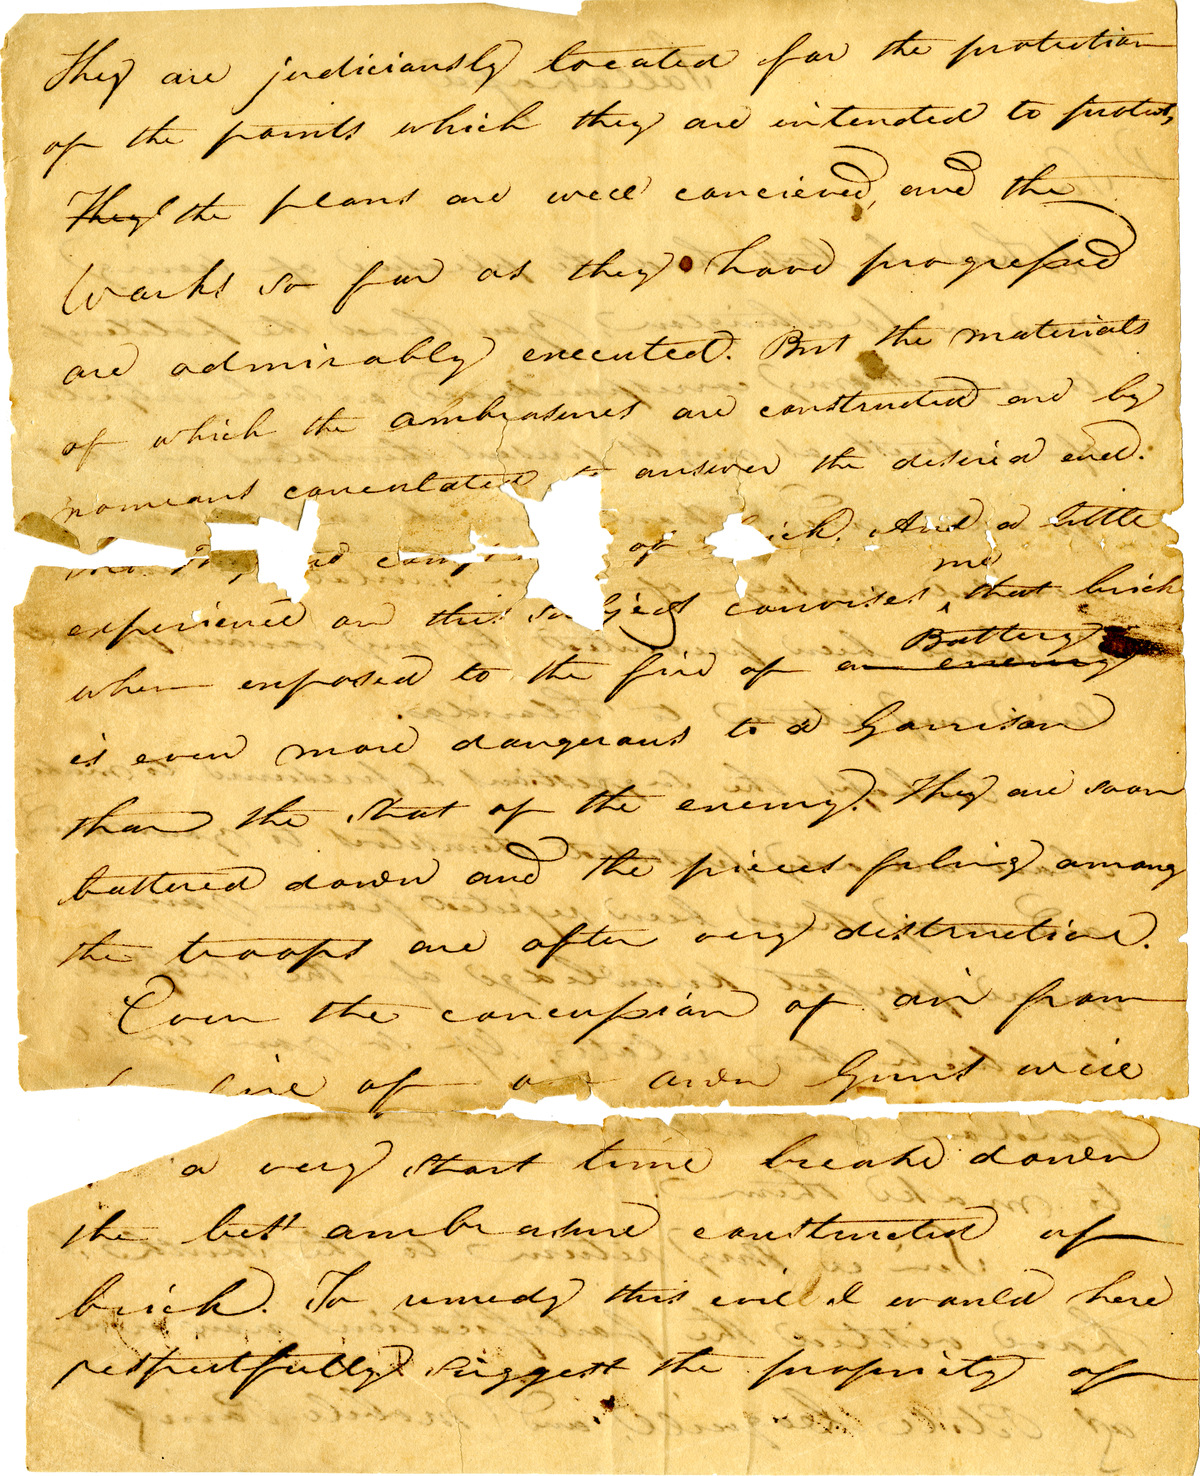 They are judiciously located for the protection
of the points which they are intended to protect,
They the plans are well concieved, and the
Works so far as they have progressed
are admirably executed. But the materials
of which the ambrasures are constructed are by
nomeans conculated to answer the desired end.
of brick. And a little
me
experience on this subject convises that brick
Battery
when exposed to the fire of an enemy
is even more dangerous to a Garrison
than the shot of the enemy. They are soon
battered down and the pieces fling among
the troops are often very distructive.
Even the concussion of air from
fire of own Guns will
a very short time breake down
the best ambrasure constructed of
brick. To remedy this evil I would here
respectfully suggest the propriety of